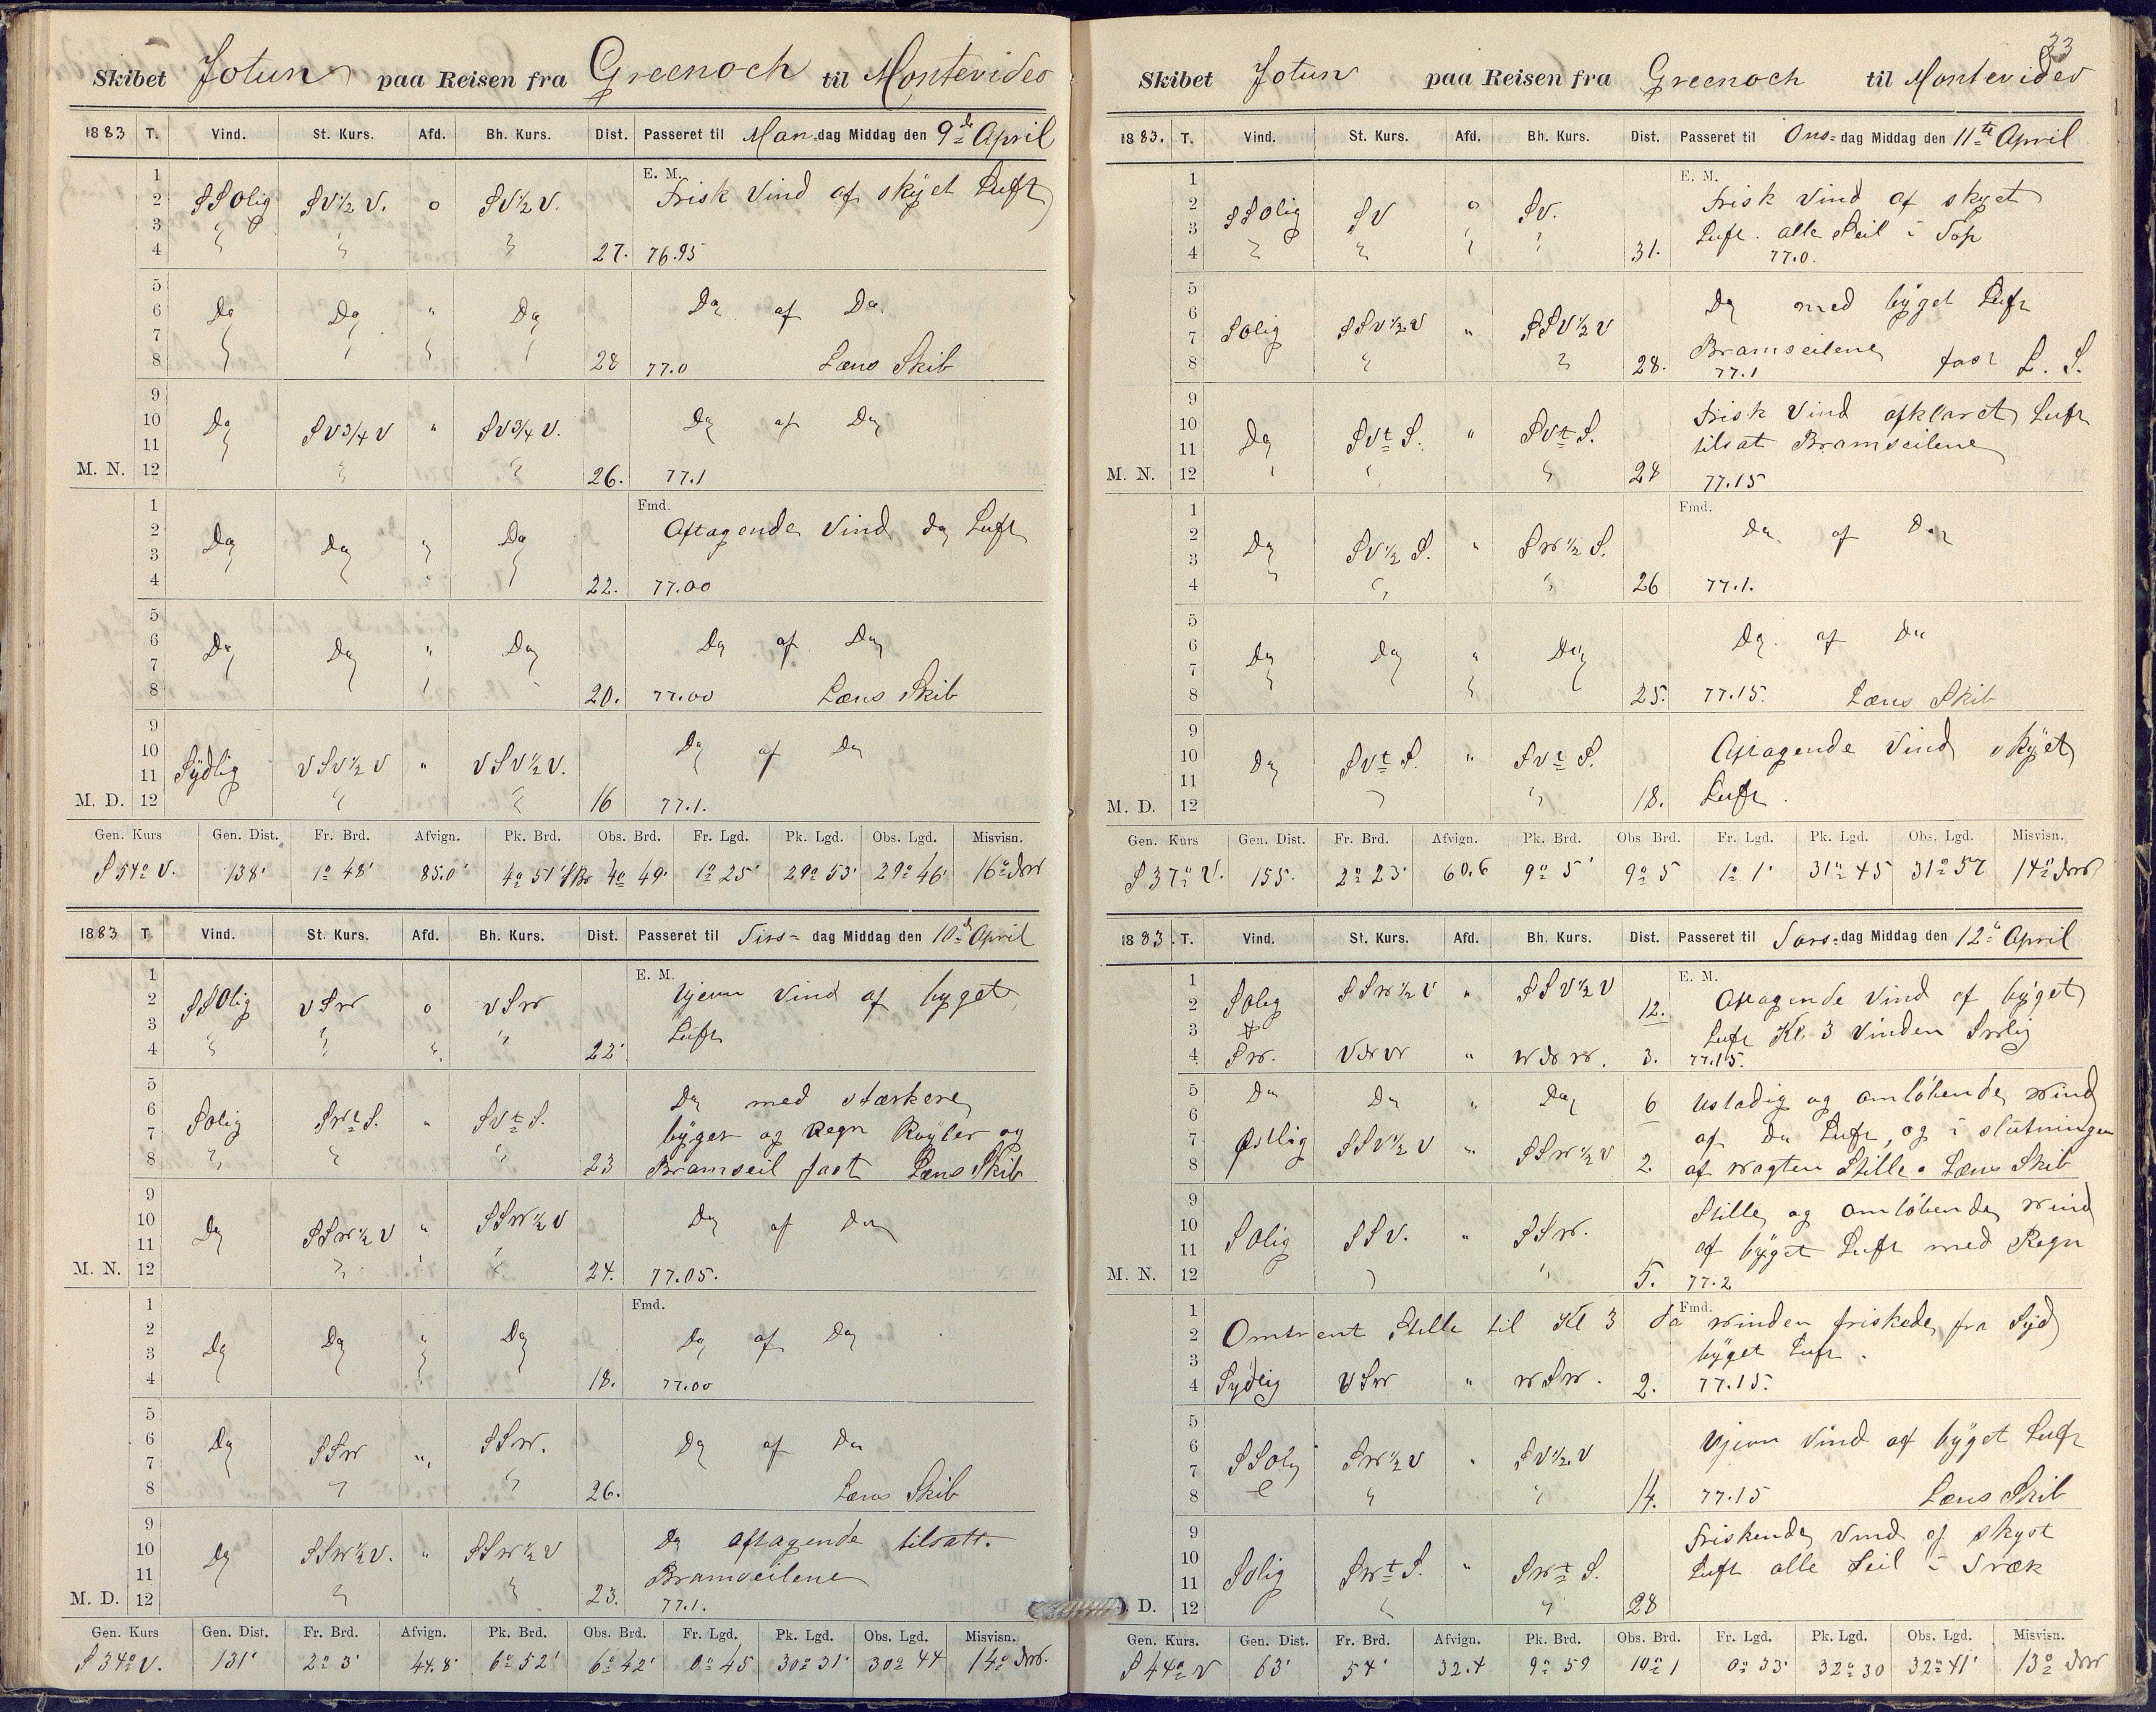 Skibet Jotun paa Reisen fra Greenoch til Montevideo
1883 T. Vind. St. Kurs. Afd. Bh. Kurs. Dist. Passeret til Man-dag Middag den 9de April
1 E. M.
2 SSOlig SV½V. o SV½V. Frisk Vind af skyet Luft
3
4 27. 76.95
5
6 Do Do " Do Do af Do
7
8 28 77.0 Læns Skib
9
10 Do SV¾V " SV¾V. Do af Do
11
M. N. 12 26. 77.1
1 Fmd.
2 Do Do " Do Aftagende Vind do Luft
3
4 22. 77.00
5
6 Do Do " Do Do af Do
7
8 20. 77.00 Læns Skib
9
10 Sÿdlig VSV½V " VSV½V. Do af Do
11
M. D. 12 16 77.1.
Gen. Kurs Gen. Dist. Fr. Brd. Afvign. Pk. Brd. Obs. Brd. Fr. Lgd. Pk. Lgd. Obs. Lgd. Misvisn.
S 54° V. 138' 1° 48' 85.0' 4° 51' 4° 49' 1° 25' 29° 53' 29° 46' 16°
1883 T. Vind. St. Kurs. Afd. Bh. Kurs. Dist. Passeret til Tirs- dag Middag den 10de April
1 E. M.
2 SSOlig VSW o VSW Ujevn Vind af byget
3 Luft
4 22'
5
6 Solig SWtS. " SVtS. Do med stærkere
7 byger og Regn Røyler og
8 23 Bramseil fast Læns Skib
9
10 Do SSW½V " SSW½V Do af Do
11
M. N. 12 24. 77.05.
1 Fmd.
2 Do Do " Do Do af Do
3
4 18. 77.00
5
6 Do SSW " SSW. Do af Do
7
8 26. Læns Skib
9
10 Do SSW½V. " SSW½V Do aftagende tilsatt.
11 Bramseilene
M. D. 12 23. 77.1.
Gen. Kurs Gen. Dist. Fr. Brd. Afvign. Pk. Brd. Obs. Brd. Fr. Lgd. Pk. Lgd. Obs. Lgd. Misvisn.
S 34° V. 131' 2° 3' 44.8' 6° 52' 6° 42' 0° 45 30° 31' 30° 44 14°
33
Skibet Jotun paa Reisen fra Greenoch til Montevideo
1883. T. Vind. St. Kurs. Afd. Bh. Kurs. Dist. Passeret til Ons- dag Middag den 11te April
1 E. M.
2 SSOlig SV o SV. Frisk Vind af skyet
3 Luft. alle Seil i Top
4 31. 77.0.
5
6 Do med bÿget Luft
7 Solig SSV½V " SSV½V
8 28. Bramseilene fast L. S.
77.1
9
10 Do SVtS. " SVtS. Frisk Vind afklaret Luft
11 tilsat Bramseilene
M. N. 12 28 77.15
1 Fmd.
2 Do SV½S. " SW½S. Do af Do
3
4 26 77.1.
5
6 Do Do " Do Do af Do
7
8 25. 77.15. Læns Skib
9
10 Do SVtS. " SVtS. Aftagende Vind skÿet
11
M. D. 12 18. Luft.
Gen. Kurs Gen. Dist. Fr. Brd. Afvign. Pk. Brd. Obs Brd. Fr. Lgd. Pk. Lgd. Obs. Lgd. Misvisn.
S 37° V. 155. 2° 23' 60.6 9° 5' 9° 5 1° 1' 31° 45 31° 57 14°
1883. T. Vind. St. Kurs. Afd. Bh. Kurs. Dist. Passeret til Tors-dag Middag den 12te April
1 E. M.
2 Solig SSW½V " SSV½V 12. Aftagende Vind af bÿget
3 Luft Kl 3 Vinden SWlig
4 SW. VNW " WNW. 3. 77.15.
5 Do Do " Do 6 Ustadig og omløbende Wind
6 af Do Luft, og i slutningen
7 Østlig SSV½V " SSW½V
8 2. af Wagten Stille. Læns Skib
9
10 Stille og omløbende Wind
11 Solig SSV. " SSW. af bÿget Luft med Regn
M. N. 12 5. 77.2
1 Fmd.
2 Omtrent Stille til Kl 3 da Winden friskede fra Syd
3 bÿget Luft.
4 Sÿdlig VSW " WSW. 2. 77.15.
5
6 Ujevn Vind af bÿget Luft
7 SSOlig SW½V " SV½V
8 14. 77.15 Læns Skib
9
10 Friskende Vind af skyet
11 Solig SWtS. " SWtS. Luft alle Seil i Træk
D. 12 28
Gen. Kurs. Gen. Dist. Fr. Brd. Afvign. Pk. Brd. Obs. Brd. Fr. Lgd. Pk. Lgd. Obs. Lgd. Misvisn.
S 44° V 63' 54' 32.4 9° 59 10° 1 0° 33' 32° 30 32° 41' 13°